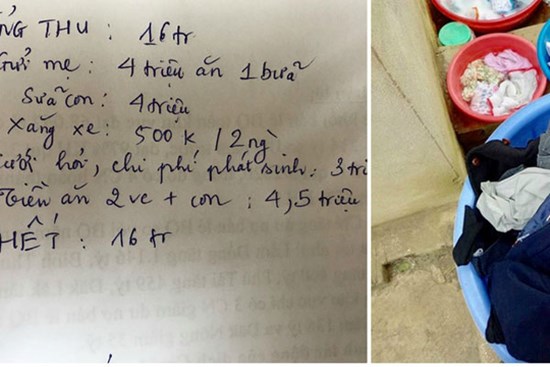 ỔNG THU : 16 tr
Gửi mẹ : 4 triệu ăn 1 bữa
Sữa con : 4 triệu
Xăng xe : 500 k / 2 ng
cưới hỏi, chi phí phát sinh : 3 tri
Tiền ăn 2 vc + con : 4,5 triệu
HẾT : 16 tr